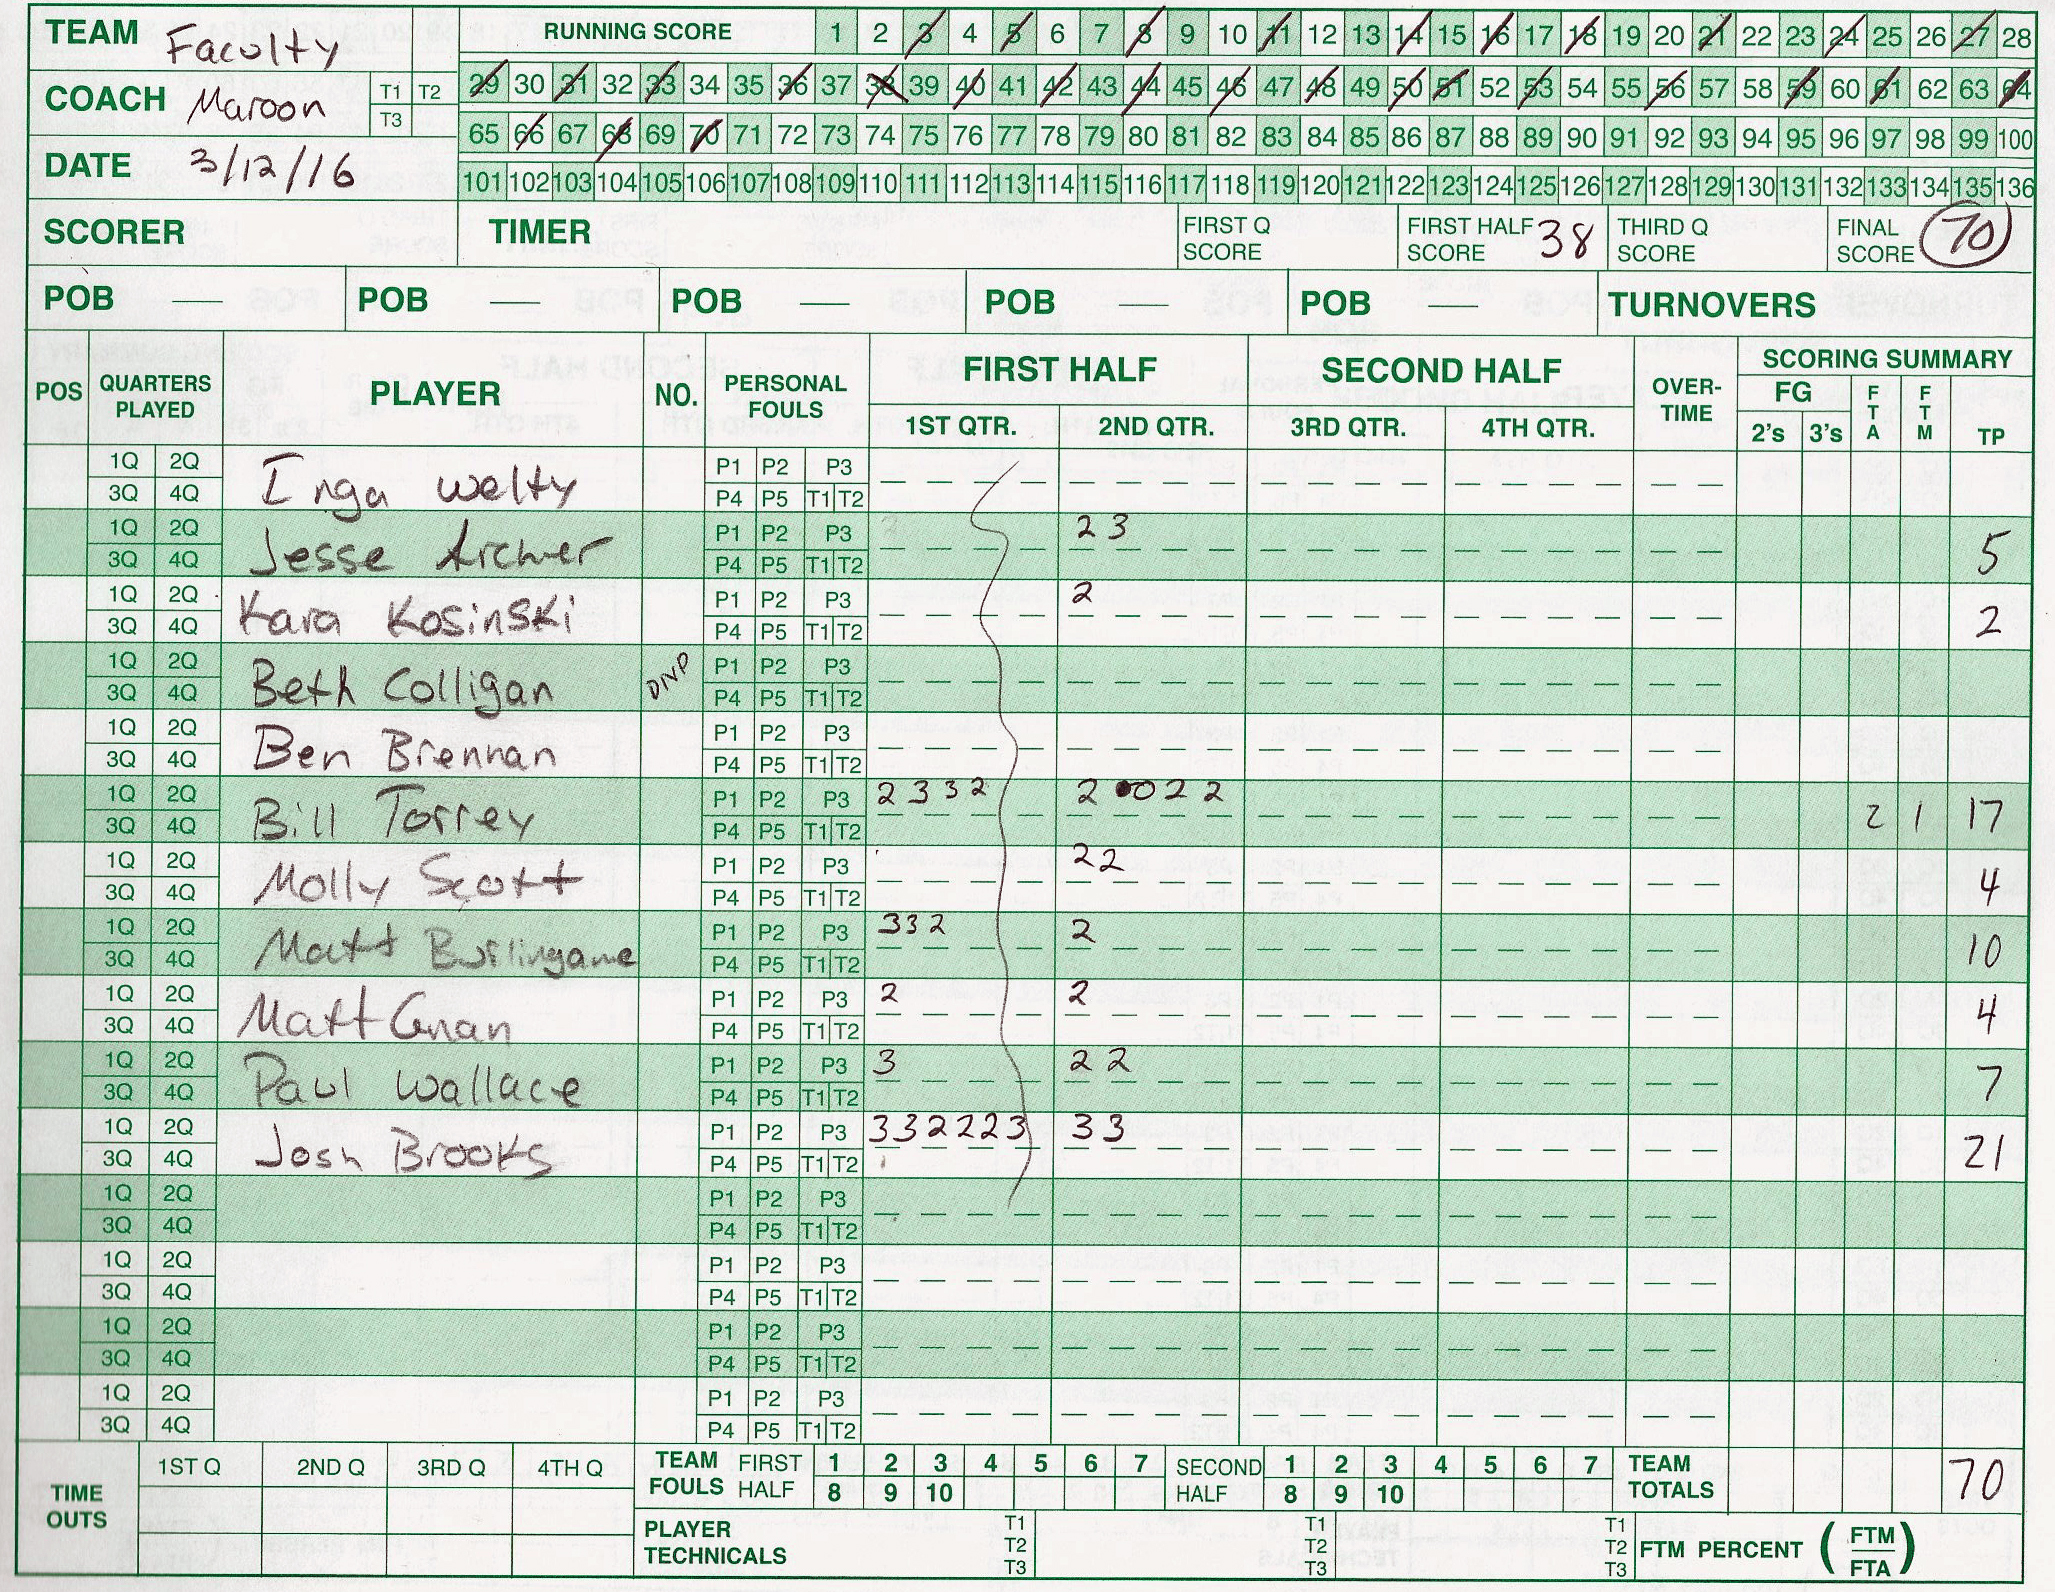 TEAM Faculty RUNNING SCORE 1 2 3 4 5 6 7 8 9 10 11 12 13 14 15 16 17 18 19 20 21 22 23 24 25 26 27 28
COACH Maroon T1 T2 T3 29 30 31 32 33 34 35 36 37 38 39 40 41 42 43 44 45 46 47 48 49 50 51 52 53 54 55 56 57 58 59 60 61 62 63 64
65 66 67 68 69 70 71 72 73 74 75 76 77 78 79 80 81 82 83 84 85 86 87 88 89 90 91 92 93 94 95 96 97 98 99 100
DATE 3/12/16 101 102 103 104 105 106 107 108 109 110 111 112 113 114 115 116 117 118 119 120 121 122 123 124 125 126 127 128 129 130 131 132 133 134 135 136
SCORER TIMER FIRST Q SCORE FIRST HALF SCORE 38 THIRD Q SCORE FINAL SCORE 70
POB — POB — POB — POB — POB — TURNOVERS
POS QUARTERS PLAYED PLAYER NO. PERSONAL FOULS FIRST HALF SECOND HALF OVER-TIME SCORING SUMMARY
1ST QTR. 2ND QTR. 3RD QTR. 4TH QTR. FG 2's 3's FTA FTM TP
1Q 2Q Inga Welty P1 P2 P3
3Q 4Q P4 P5 T1 T2
1Q 2Q Jesse Archer P1 P2 P3 2 3 5
3Q 4Q P4 P5 T1 T2
1Q 2Q Kara Kosinski P1 P2 P3 2 2
3Q 4Q P4 P5 T1 T2
1Q 2Q Beth Colligan DNP P1 P2 P3
3Q 4Q P4 P5 T1 T2
1Q 2Q Ben Brennan P1 P2 P3
3Q 4Q P4 P5 T1 T2
1Q 2Q Bill Torrey P1 P2 P3 2 3 3 2 2 0 2 2 2 1 17
3Q 4Q P4 P5 T1 T2
1Q 2Q Molly Scott P1 P2 P3 2 2 4
3Q 4Q P4 P5 T1 T2
1Q 2Q Matt Burlingame P1 P2 P3 3 3 2 2 10
3Q 4Q P4 P5 T1 T2
1Q 2Q Matt P1 P2 P3 2 2 4
3Q 4Q P4 P5 T1 T2
1Q 2Q Paul Wallace P1 P2 P3 3 2 2 7
3Q 4Q P4 P5 T1 T2
1Q 2Q Josh Brooks P1 P2 P3 3 3 2 2 2 3 3 3 21
3Q 4Q P4 P5 T1 T2
1Q 2Q P1 P2 P3
3Q 4Q P4 P5 T1 T2
1Q 2Q P1 P2 P3
3Q 4Q P4 P5 T1 T2
1Q 2Q P1 P2 P3
3Q 4Q P4 P5 T1 T2
1Q 2Q P1 P2 P3
3Q 4Q P4 P5 T1 T2
TIME OUTS 1ST Q 2ND Q 3RD Q 4TH Q
TEAM FOULS FIRST HALF 1 2 3 4 5 6 7 8 9 10 SECOND HALF 1 2 3 4 5 6 7 8 9 10 TEAM TOTALS 70
PLAYER TECHNICALS T1 T2 T3 T1 T2 T3 T1 T2 T3 FTM PERCENT (FTM/FTA)